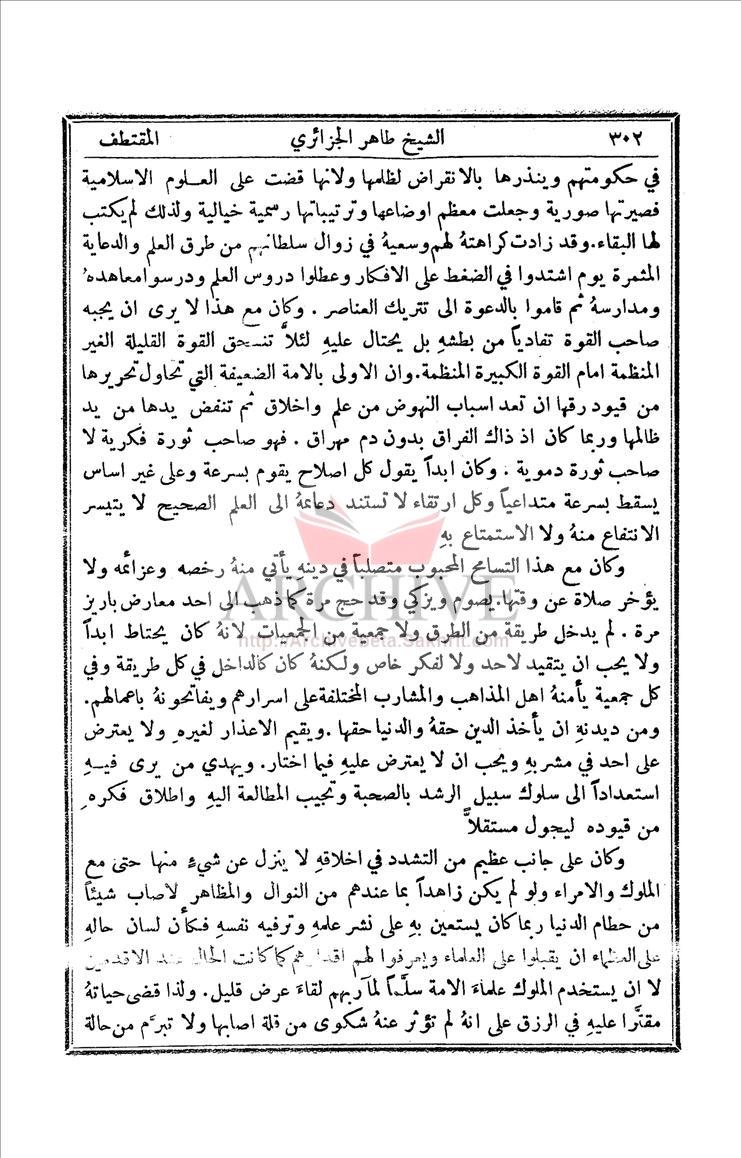 ٣٠٢ الشيخ طاهر الجزائري المقتطف
في حكومتهم وينذرها بالانقراض لظلمها ولانها قضت على العلوم الاسلامية
فصيرتها صورية وجعلت معظم اوضاعها وترتيباتها رسمية خيالية ولذلك لم يكتب
لها البقاء. وقد زادت كراهتهُ لهم وسعيهُ في زوال سلطانهم من طرق العلم والدعاية
المثمرة يوم اشتدوا في الضغط على الافكار وعطلوا دروس العلم ودرسوا معاهدهُ
ومدارسهُ ثم قاموا بالدعوة الى تتريك العناصر . وكان مع هذا لا يرى ان يجبه
صاحب القوة تفادياً من بطشهِ بل يحتال عليهِ لئلاَّ تنسحق القوة القليلة الغير
المنظمة امام القوة الكبيرة المنظمة. وان الاولى بالامة الضعيفة التي تحاول تحريرها
من قيود رقها ان تعد اسباب النهوض من علم واخلاق ثم تنفض يدها من يد
ظالمها وربما كان اذ ذاك الفراق بدون دم مهراق . فهو صاحب ثورة فكرية لا
صاحب ثورة دموية . وكان ابداً يقول كل اصلاح يقوم بسرعة وعلى غير اساس
يسقط بسرعة متداعياً وكل ارتقاء لا تستند دعائمهُ الى العلم الصحيح لا يتيسر
الانتفاع منهُ ولا الاستمتاع بهِ
وكان مع هذا التسامح المحبوب متصلباً في دينه يأتي منهُ رخصه وعزائمه ولا
يؤخر صلاة عن وقتها. يصوم ويزكي وقد حج مرة كما ذهب الى احد معارض باريز
مرة . لم يدخل طريقة من الطرق ولا جمعية من الجمعيات لانهُ كان يحتاط ابداً
ولا يحب ان يتقيد لاحد ولا لفكر خاص ولكنهُ كان كالداخل في كل طريقة وفي
كل جمعية يأمنهُ اهل المذاهب والمشارب المختلفة على اسرارهم ويفاتحونهُ باعمالهم.
ومن ديدنهِ ان يأخذ الدين حقهُ والدنيا حقها . ويقيم الاعذار لغيرهِ ولا يعترض
على احد في مشربهِ ويحب ان لا يعترض عليهِ فيما اختار. ويهدي من يرى فيهِ
استعداداً الى سلوك سبيل الرشد بالصحبة وتحبيب المطالعة اليهِ واطلاق فكرهِ
من قيوده ليجول مستقلاًّ
وكان على جانب عظيم من التشدد في اخلاقهِ لا ينزل عن شيءٍ منها حتى مع
الملوك والامراء ولو لم يكن زاهداً بما عندهم من النوال والمظاهر لاصاب شيئاً
من حطام الدنيا ربما كان يستعين بهِ على نشر علمهِ وترفيه نفسهِ فكأن لسان حالهِ
على العظماء ان يقبلوا على العلماء ويعرفوا لهم اقدارهم كما كانت الحال عند الاقدمين
لا ان يستخدم الملوك علماءَ الامة سلَّماً لمآربهم لقاءَ عرض قليل. ولذا قضى حياتهُ
مقتَّرا عليهِ في الرزق على انهُ لم تؤثر عنهُ شكوى من قلة اصابها ولا تبرَّم من حالة
ARCHIVE
http://Archivebeta.Sakhrit.com